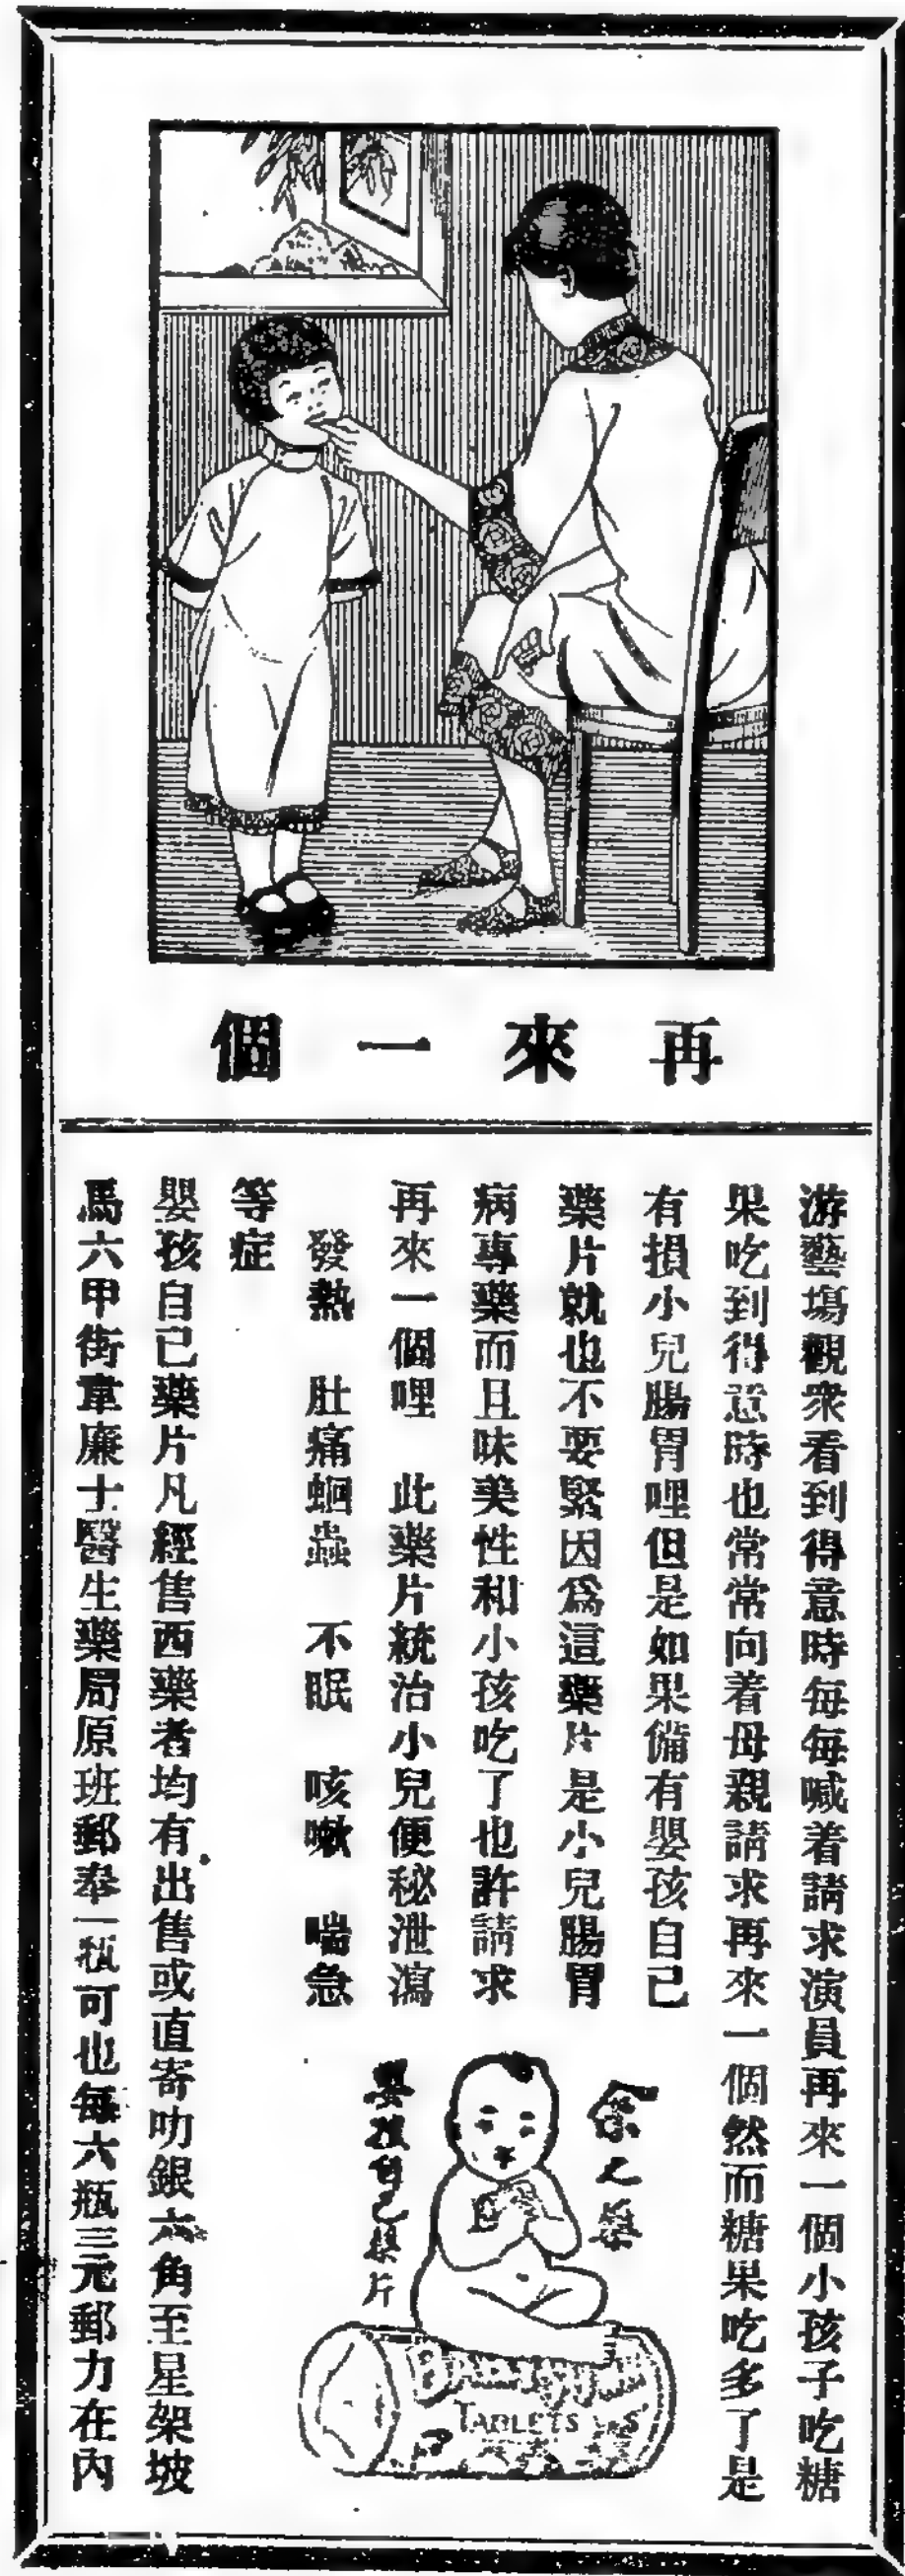 再來一個
游藝塲觀衆看到得意時每每喊着請求演員再來一個小孩子吃糖
果吃到得意時也常常向着母親請求再來一個然而糖果吃多了是
有損小兒腸胃哩但是如果備有嬰孩自己
藥片就也不要緊因爲這藥片是小兒腸胃
病專藥而且味美性和小孩吃了也許請求
再來一個哩 此藥片統治小兒便秘泄瀉
發熱 肚痛蛔蟲 不眠 咳嗽 喘急
等症
嬰孩自已藥片凡經售西藥者均有出售或直寄叻銀六角至星架坡
馬六甲街韋廉士醫生藥局原班郵奉一瓶可也每六瓶三元郵力在內
余之藥
嬰孩自己藥片
TABLETS